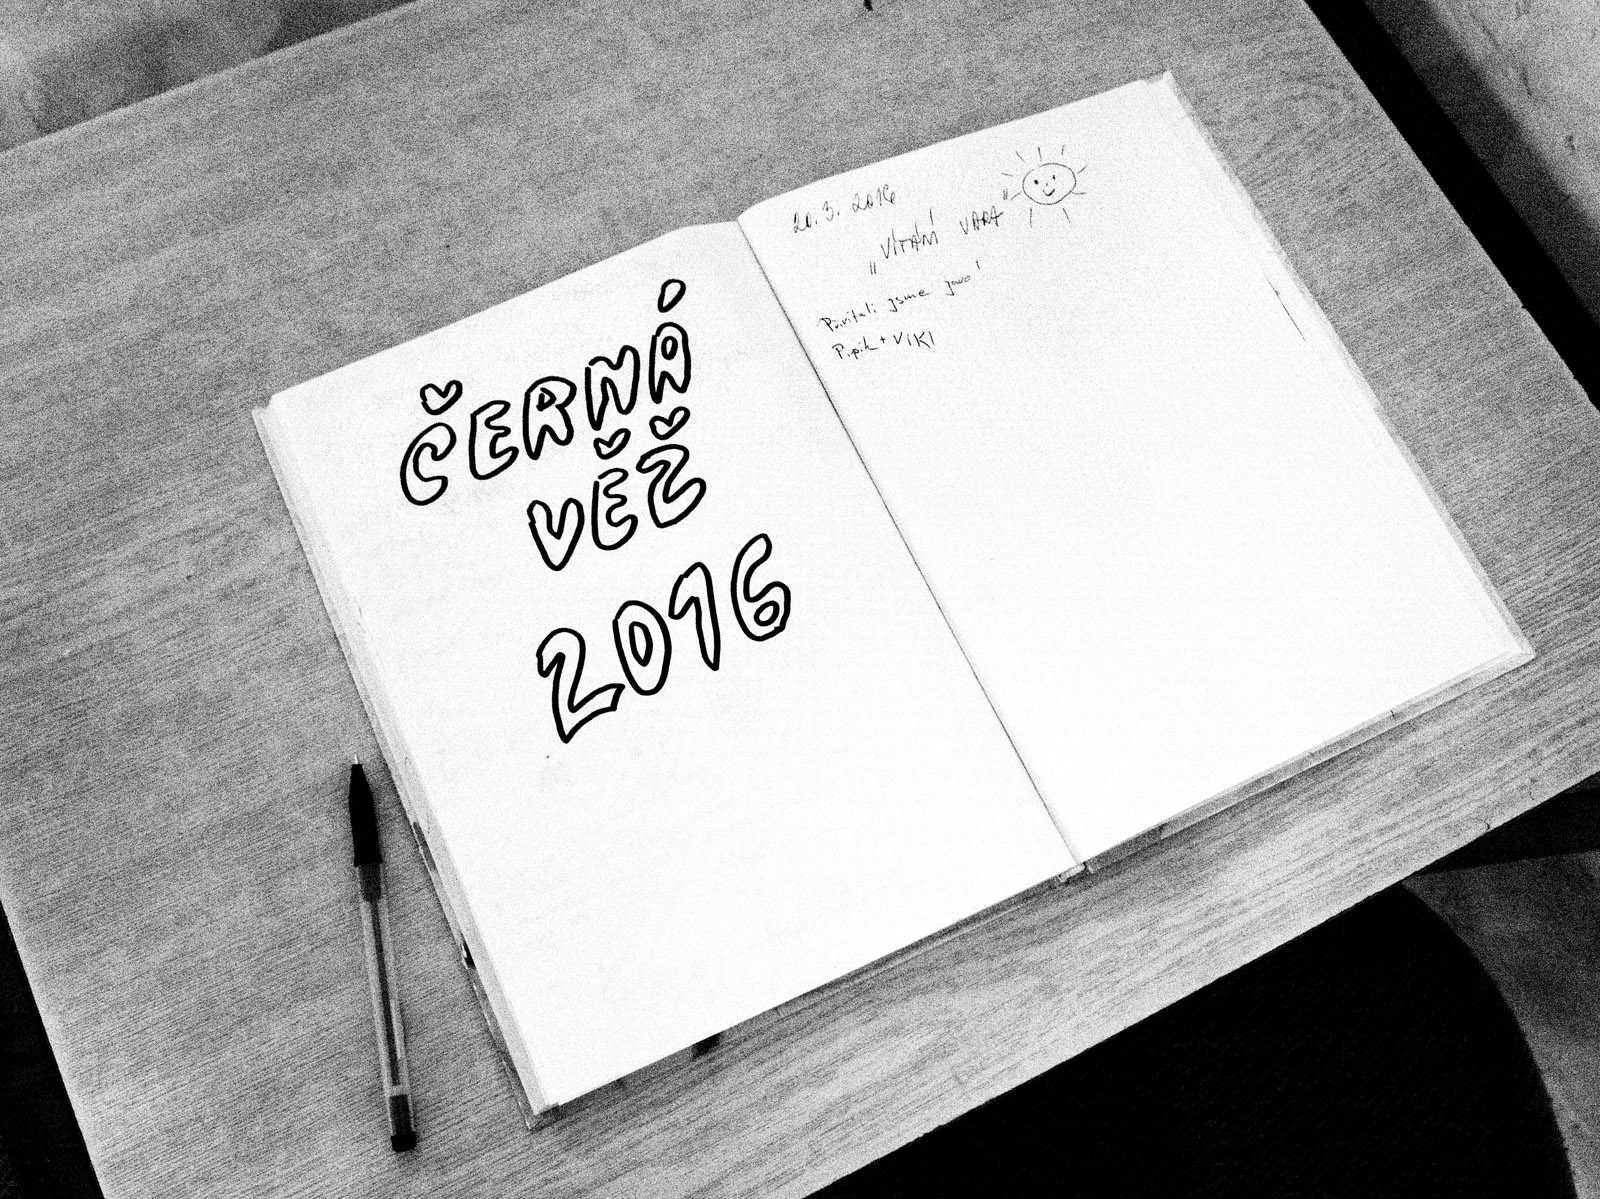 ČERNÁ
VĚŽ
2016
20.3. 2016
„VÍTÁNÍ JARA"
Přivítali jsme jaro!
Pipik + VIKI